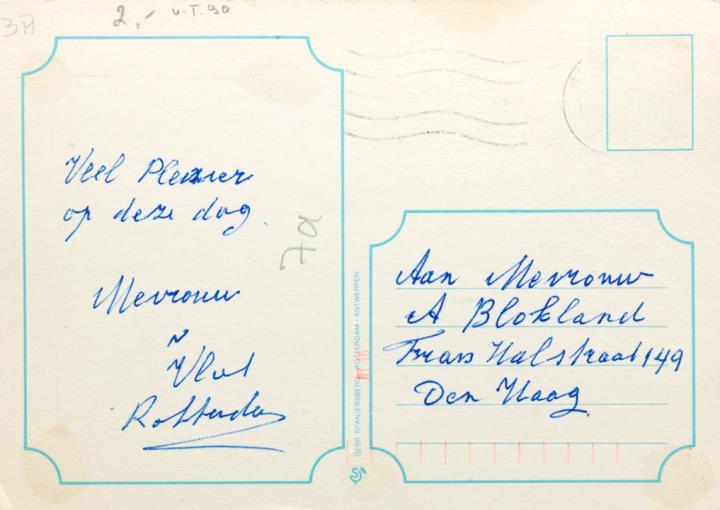 37
2,- v.T. 90
Veel Plezier
op deze dag.
Mevrouw
Vlot
Rotterdam
7a
GEBR. SPANJERSBERG - ROTTERDAM - ANTWERPEN
Aan Mevrouw
A Blokland
Frans Halstraat 149
Den Haag